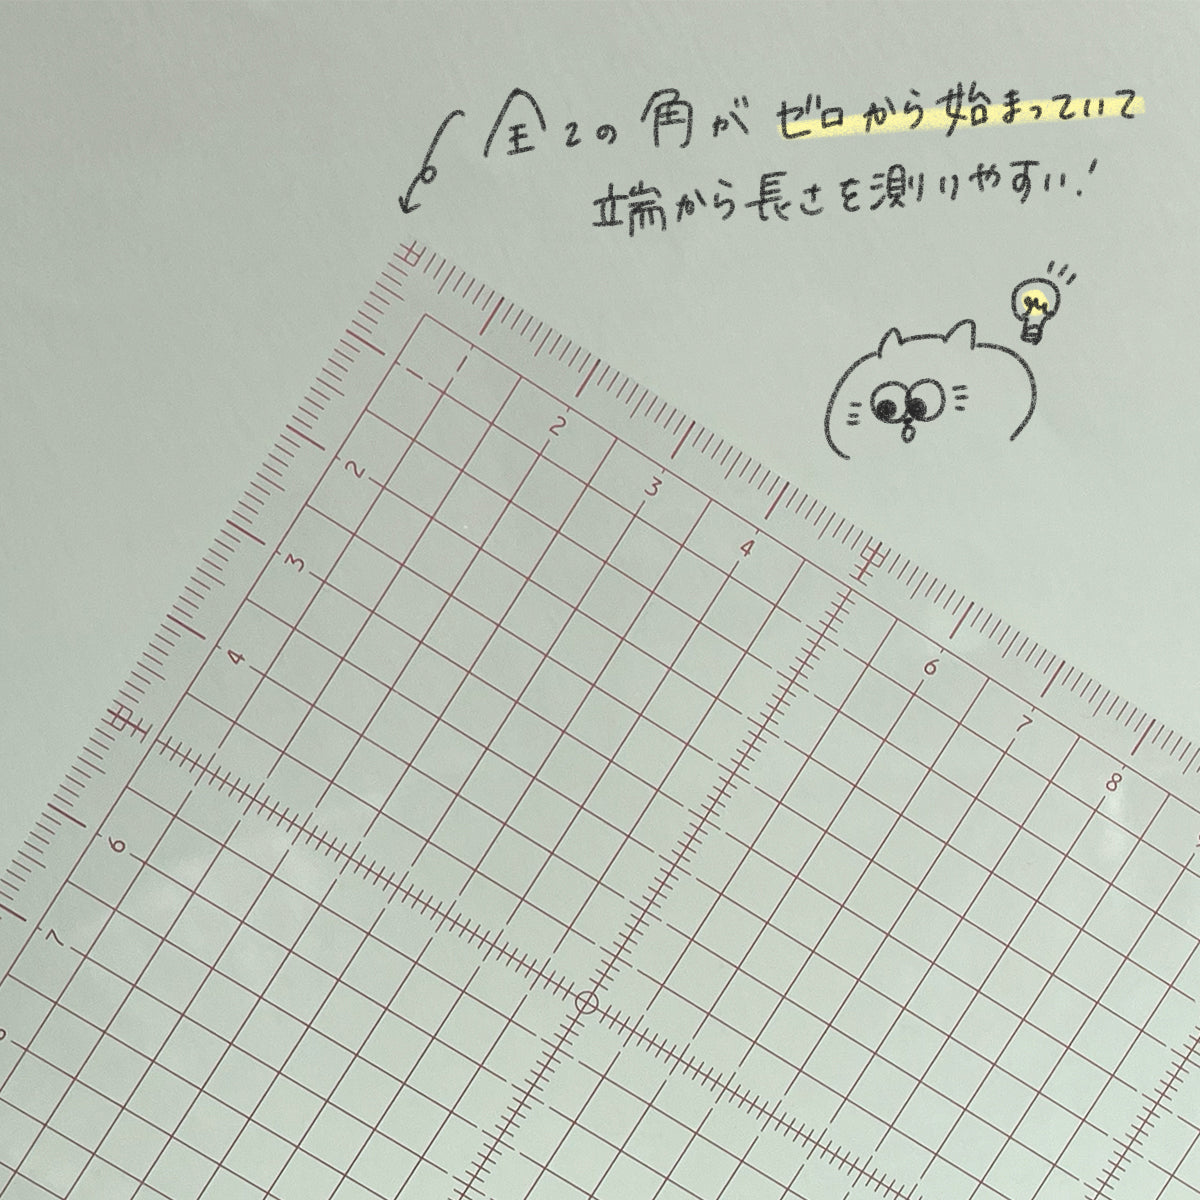 全ての角がゼロから始まっていて
端から長さを測りやすい!
1
2
3
4
6
7
8
2
3
4
6
7